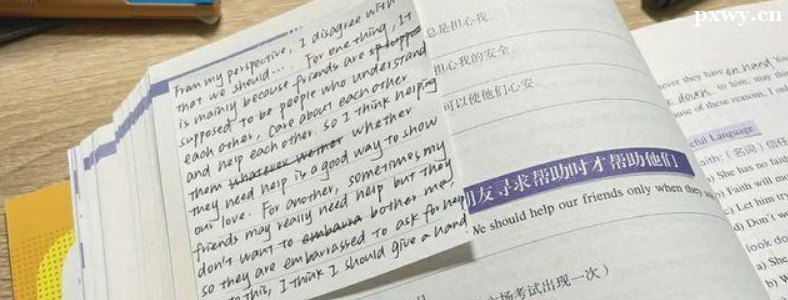 From my perspective, I disagree with
that we should.... For one thing, It
is mainly because friends are suppo
supposed to be people who understand
each other, care about each other
and help each other. so I think helping
them whatever wether whether
they need help is a good way to show
our love. For another, sometimes my
friends may really need help but they
don't want to embarra bother me,
so they are embarrassed to ask for help
this, I think I should give a hand
总是担心我。
担心我的安全
可以使他们心安。
朋友寻求帮助时才帮助他们
We should help our friends only when they
场考试出现一次）
ever they have on hand You
down to him; may thin
use of these reasons, I onl
ful Language
aith: (名词) 信任
) She has no faith
) Faith will m
) Let him try
) Don't wor
look do
a) She
b) We
pxwy.cn